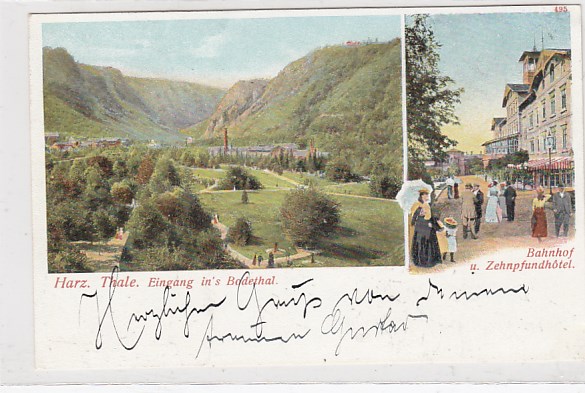 495
Harz. Thale. Eingang in's Bodethal.
Bahnhof
u. Zehnpfundhôtel.
Herzlichen Gruß von deinem
treuen Gustav